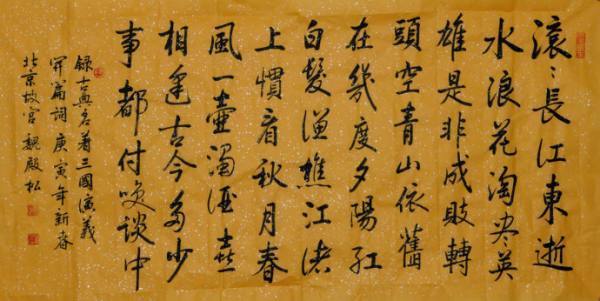 滾〻長江東逝
水浪花淘尽英
雄是非成敗轉
頭空青山依舊
在幾度夕陽紅
白髮漁樵江渚
上慣看秋月春
風一壺濁酒喜
相逢古今多少
事都付笑談中
録古典名著三國演義
開篇詞庚寅年新春
北京故宮魏殿松